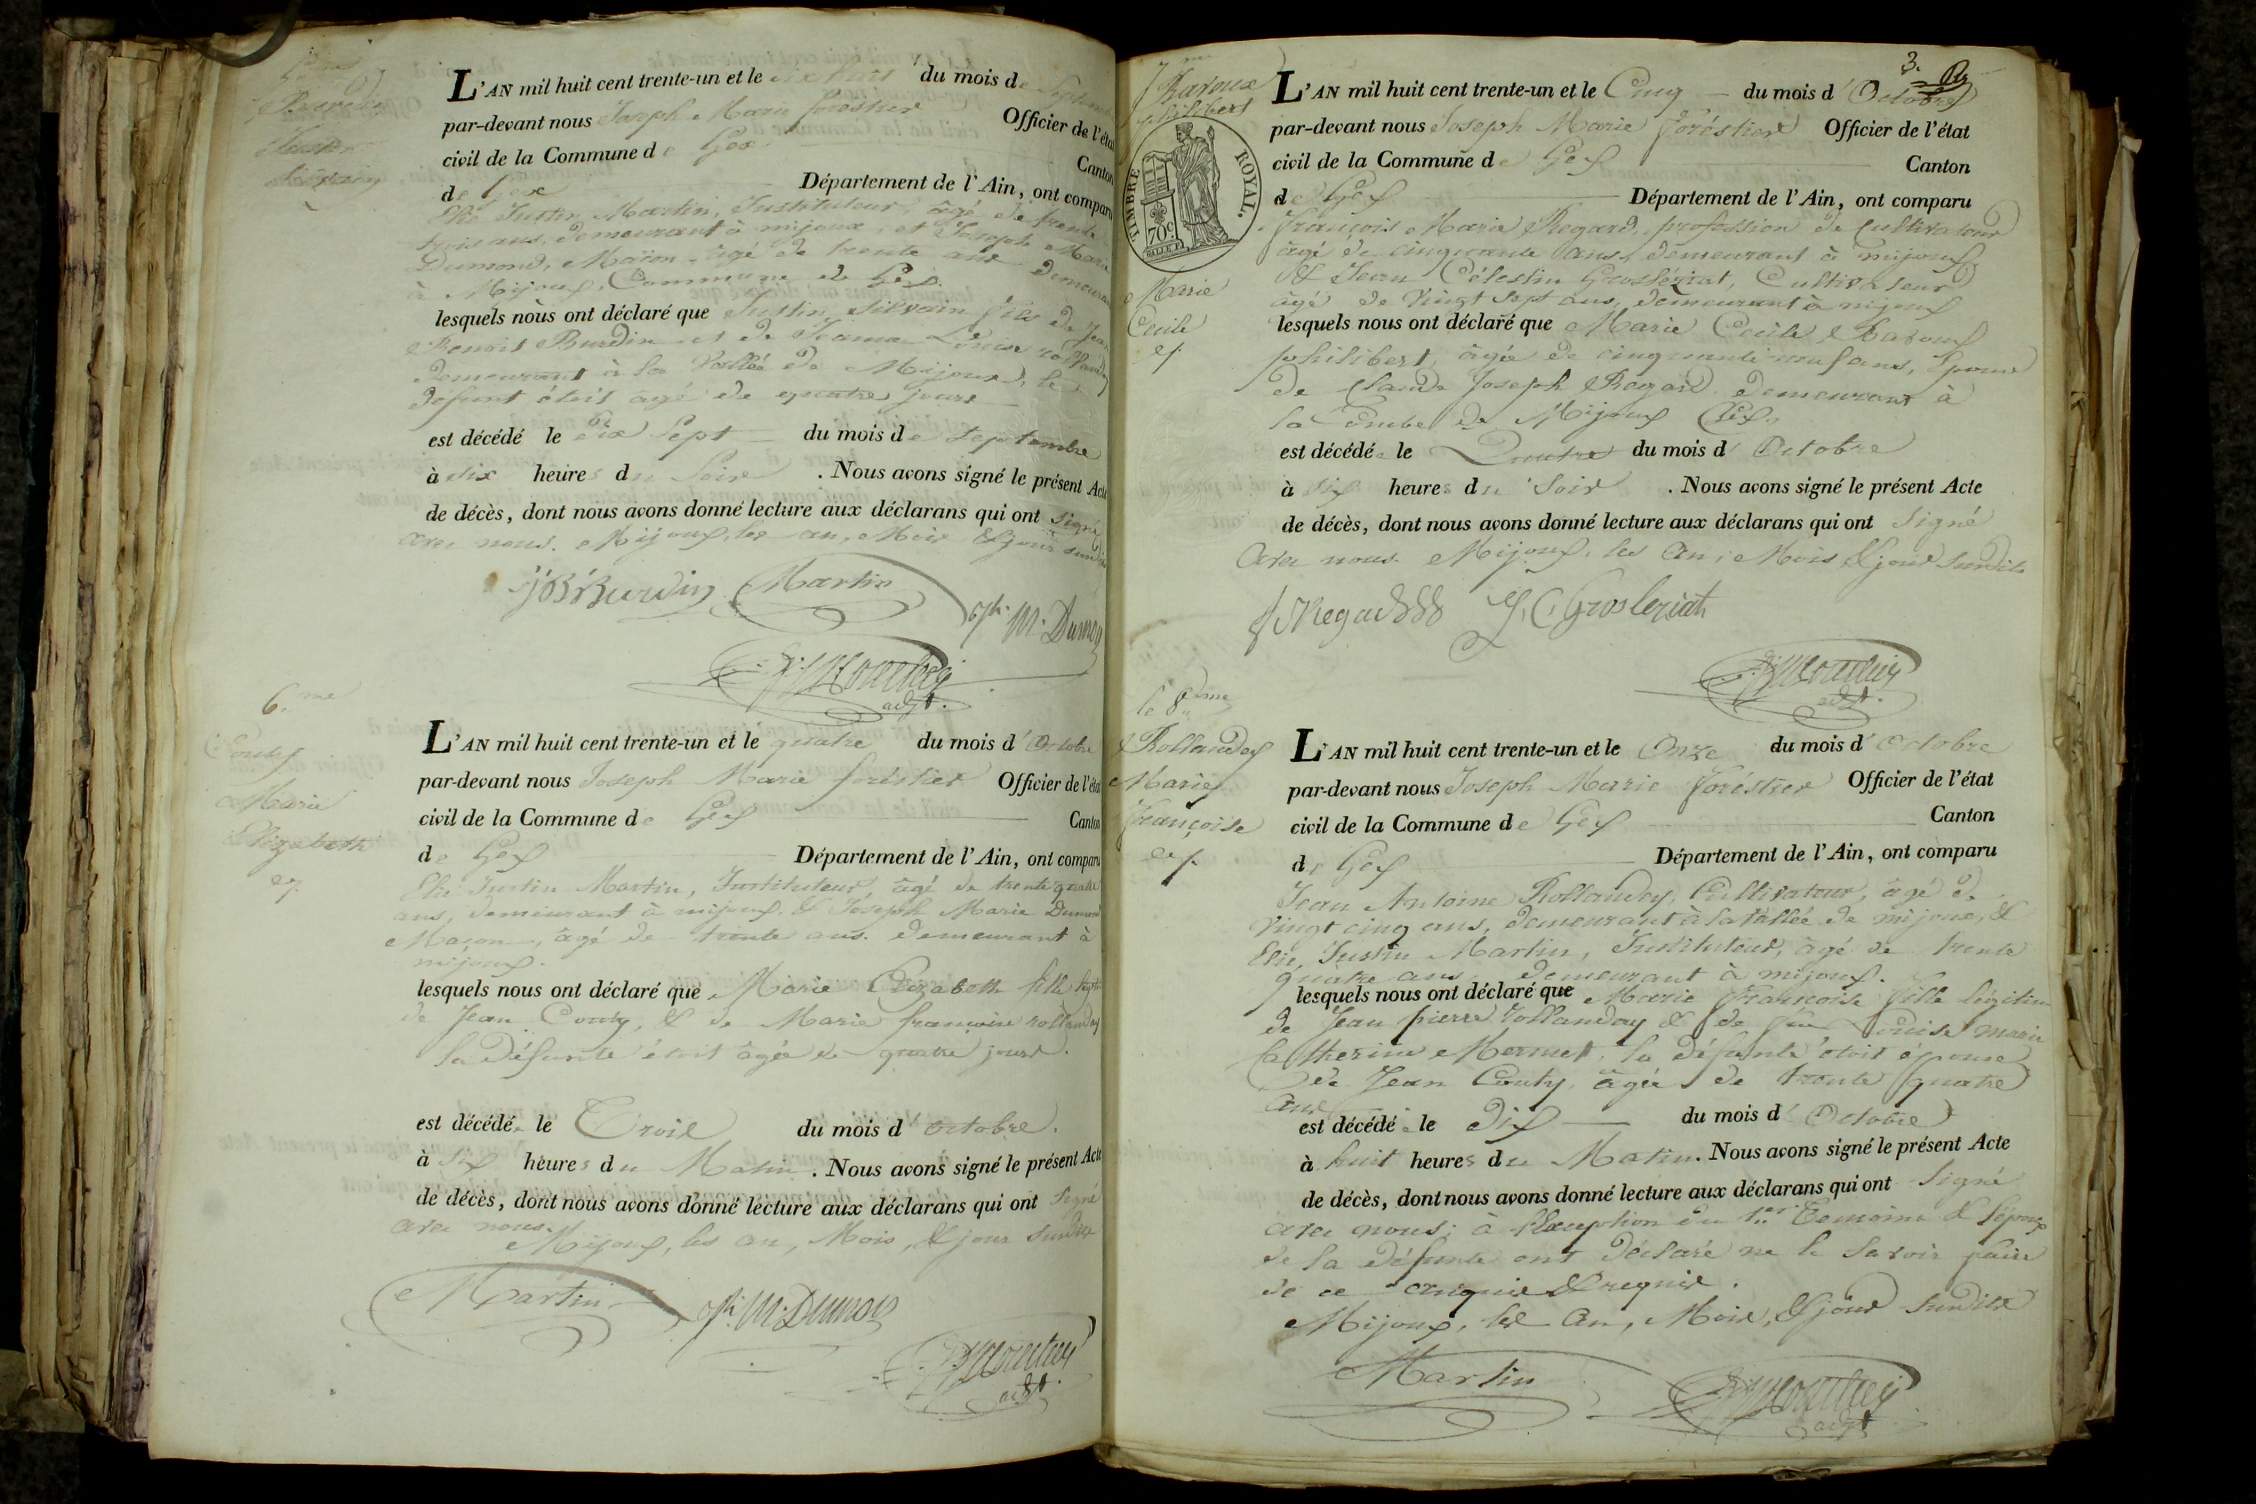 Burdin
Justin
Silvain
L'AN mil huit cent trente-un et le dix huit du mois de Septembre
par-devant nous Joseph Marie forestier Officier de l'état
civil de la Commune de Gex Canton
de Gex Département de l'Ain, ont comparu
Elie Justin Martin, Instituteur âgé de trente
trois ans, demeurant à mijoux, et Joseph Marie
Dumond, Maçon âgé de trente ans demeurant
à Mijoux, Commune de Gex.
lesquels nous ont déclaré que Justin Silvain fils de Jean
Benoit Burdin et de Jeanne Louise
demeurant à la Vallée de Mijoux, le
défunt étoit âgé de quatre jours
est décédé le dix Sept du mois de septembre
à six heures du Soir . Nous avons signé le présent Acte
de décès, dont nous avons donné lecture aux déclarans qui ont signé
avec nous. Mijoux, les an, Mois & jour susdits
JB Burdin Martin
Jh. M. Dumond
adjt.
6.me
Couty
Marie
Elizabeth
L'AN mil huit cent trente-un et le quatre du mois d'Octobre
par-devant nous Joseph Marie foréstier Officier de l'état
civil de la Commune de Gex Canton
de Gex Département de l'Ain, ont comparu
Elie Justin Martin, Instituteur, âgé de trente quatre
ans, demeurant à mijoux. & Joseph Marie Dumond
Maçon, âgé de trente ans. demeurant à
mijoux.
lesquels nous ont déclaré que Marie Elizabeth fille
de Jean Couty, & de Marie françoise rollanday
la défunte étoit âgée de quatre jours.
est décédée le Trois du mois d'octobre.
à six heures du Matin . Nous avons signé le présent Acte
de décès, dont nous avons donné lecture aux déclarans qui ont signé
avec nous.
Mijoux, les an, Mois, & jour susdits
Martin Jh. M. Dumond
adjt.
3.
7.me
Philibert
TIMBRE ROYAL.
70c
Marie
Cecile
L'AN mil huit cent trente-un et le Cinq du mois d'Octobre
par-devant nous Joseph Marie Foréstier Officier de l'état
civil de la Commune de Gex Canton
de Gex Département de l'Ain, ont comparu
François Marie Regard, profession de Cultivateur
âgé de cinquante ans, demeurant à mijoux
& Jean Célestin Grosléziat, Cultivateur
âgé de Vingt Sept ans, demeurant à mijoux
lesquels nous ont déclaré que Marie Cecile
philibert, âgée de cinquante neuf ans, Epouse
de Claude Joseph Regard demeurant à
la Combe de Mijoux Gex,
est décédée le Quatre du mois d'Octobre
à six heures du Soir . Nous avons signé le présent Acte
de décès, dont nous avons donné lecture aux déclarans qui ont Signé
avec nous. Mijoux, les an, Mois, & jour susdits
J C Grosleziat
adjt.
le 8.eme
Rollanday
Marie
Françoise
L'AN mil huit cent trente-un et le Onze du mois d'octobre
par-devant nous Joseph Marie foréstier Officier de l'état
civil de la Commune de Gex Canton
de Gex Département de l'Ain, ont comparu
Jean Antoine Rollanday, Cultivateur, âgé de
vingt cinq ans, demeurant à la Vallée de mijoux, &
Elie Justin Martin, Instituteur, âgé de trente
quatre ans demeurant à mijoux.
lesquels nous ont déclaré que Marie françoise fille légitime
de Jean pierre rollanday & de feu Louise marie
Catherine Mermet, la défunte étoit épouse
de Jean Couty, âgée de trente quatre
ans
est décédée le Dix du mois d'Octobre
à huit heures du Matin. Nous avons signé le présent Acte
de décès, dont nous avons donné lecture aux déclarans qui ont signé
avec nous; à l'Exception du 1.er Temoins & l'époux
de la défunte ont déclaré ne le savoir faire
de ce enquis & requis.
Mijoux, les An, Mois, & jour susdits
Martin
adjt.